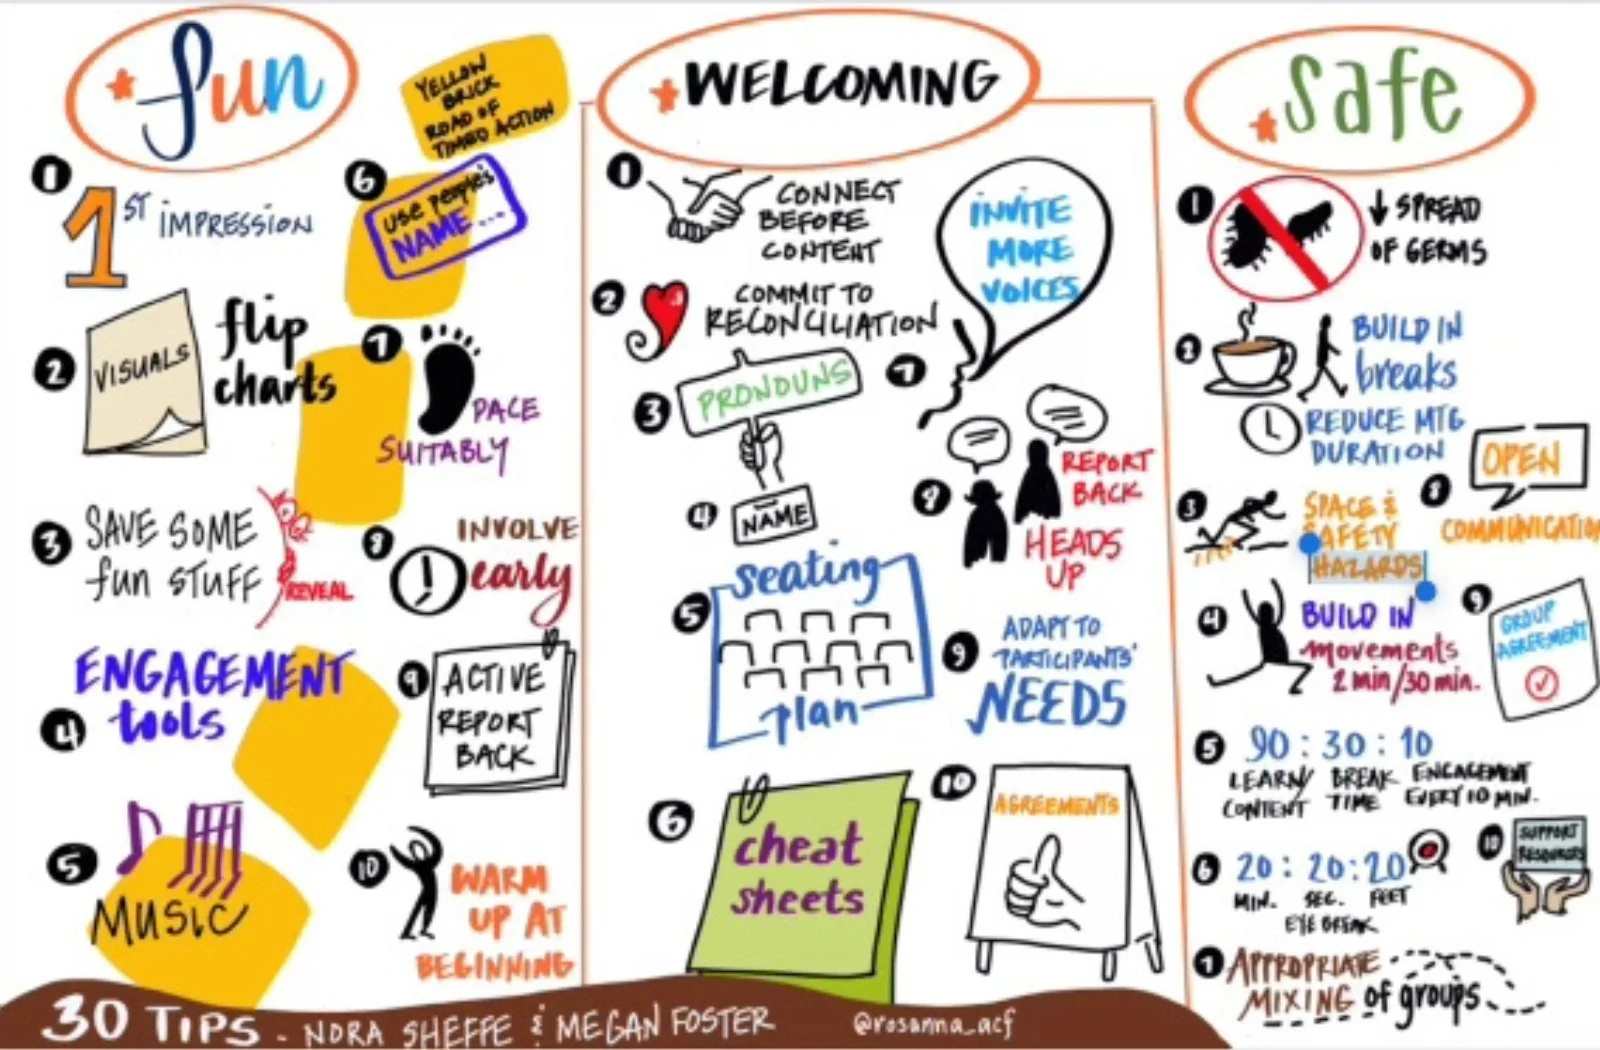 fun
YELLOW
BRICK
ROAD OF
TIMED ACTION
1
1ST IMPRESSION
2
VISUALS
flip
charts
3
SAVE SOME
fun STUFF
REVEAL
4
ENGAGEMENT
tools
5
MUSIC
6
USE people's
NAME...
7
PACE
SUITABLY
8
INVOLVE
early
9
ACTIVE
REPORT
BACK
10
WARM
UP AT
BEGINNING
WELCOMING
1
CONNECT
BEFORE
CONTENT
2
COMMIT TO
RECONCILIATION
3
PRONOUNS
4
NAME
5
seating
plan
6
cheat
sheets
7
INVITE
MORE
VOICES
8
REPORT
BACK
HEADS
UP
9
ADAPT TO
PARTICIPANTS'
NEEDS
10
AGREEMENTS
safe
1
↓ SPREAD
OF GERMS
2
BUILD IN
breaks
REDUCE MTG
DURATION
3
SPACE &
SAFETY
HAZARDS
4
BUILD IN
movements
2 min/30 min.
5
90 : 30 : 10
LEARN/ BREAK ENGAGEMENT
CONTENT TIME EVERY 10 MIN.
6
20 : 20 : 20
MIN. SEC. FEET
EYE BREAK
7
APPROPRIATE
MIXING of groups
8
OPEN
COMMUNICATION
9
GROUP
AGREEMENT
10
SUPPORT
RESOURCES
30 TIPS - NORA SHEFFE & MEGAN FOSTER @rosanna_acf